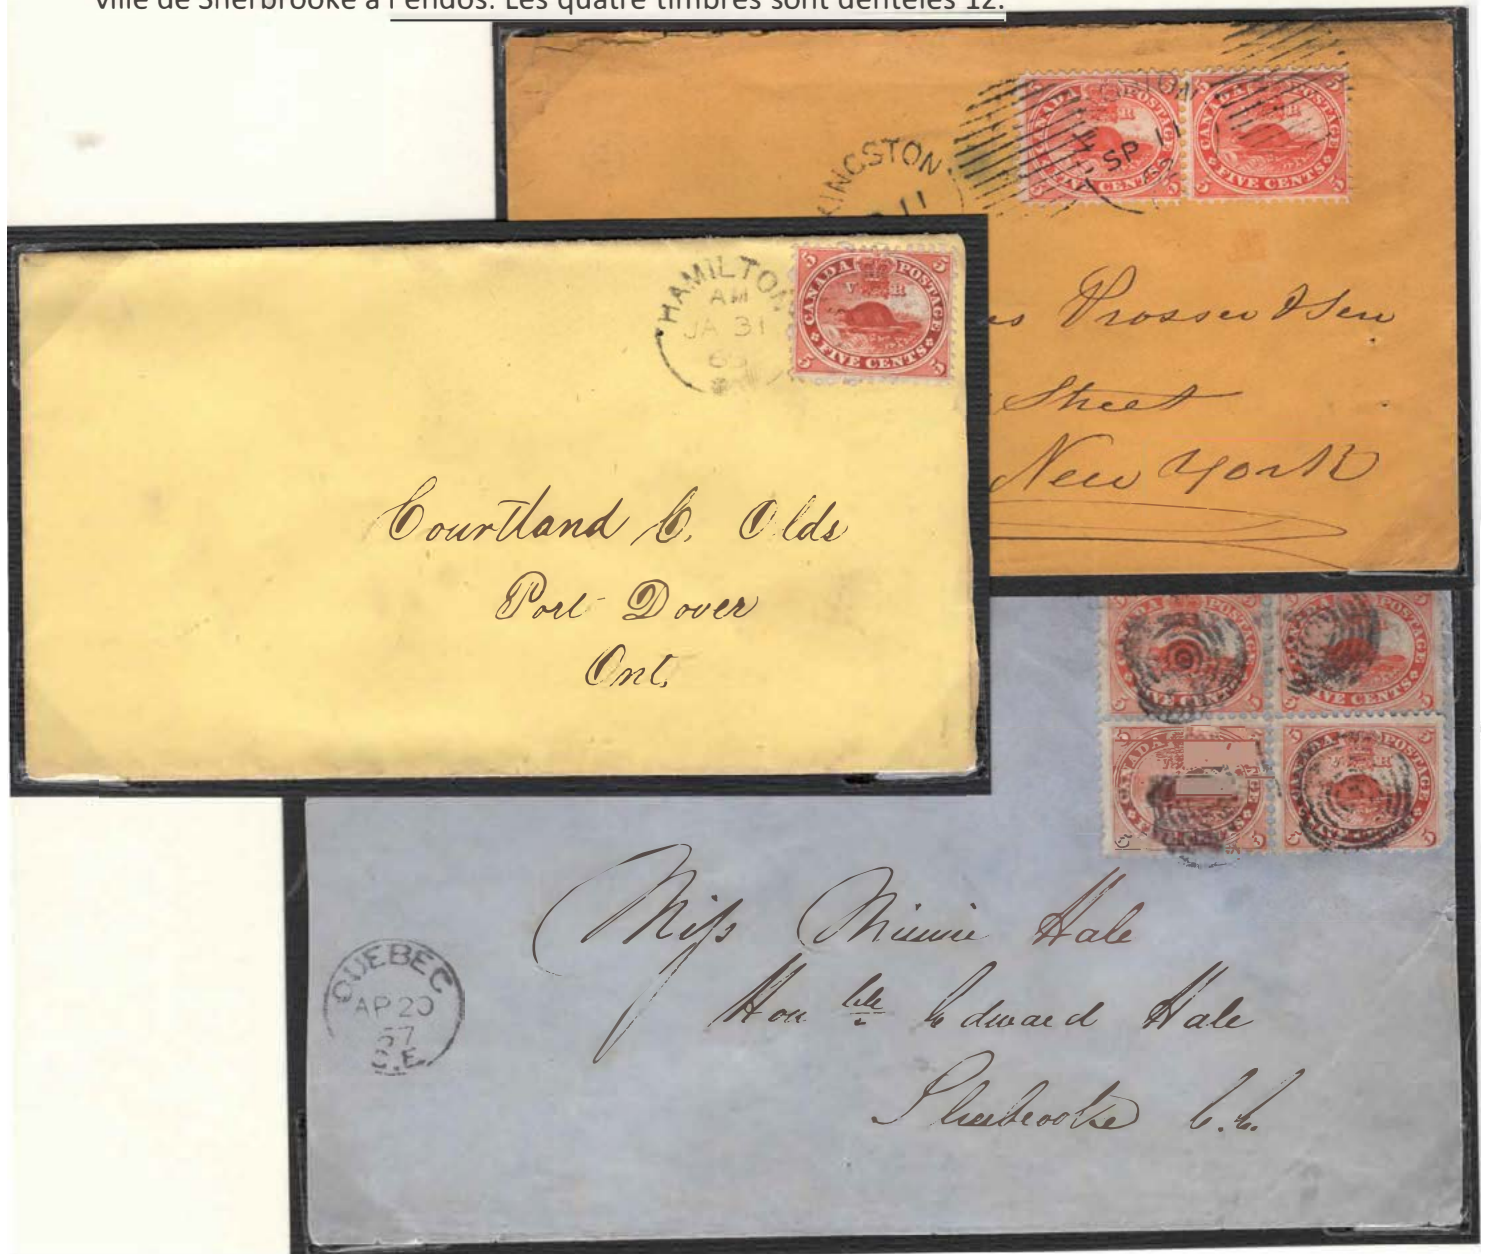 ville de Sherbrooke à l'endos. Les quatre timbres sont dentelés 12.
KINGSTON
11
SP 11
62
CANADA POSTAGE
FIVE CENTS
CANADA POSTAGE
FIVE CENTS
Prosser
Street
New York
HAMILTON
AM
JA 31
5 5
CANADA POSTAGE
V R
FIVE CENTS
5 5
Courtland C. Olds
Port Dover
Ont.
FIVE CENTS
CANADA POSTAGE
Miss Minnie Hale
Honble Edward Hale
Sherbrooke C.E.
QUEBEC
AP 20
67
C.E.